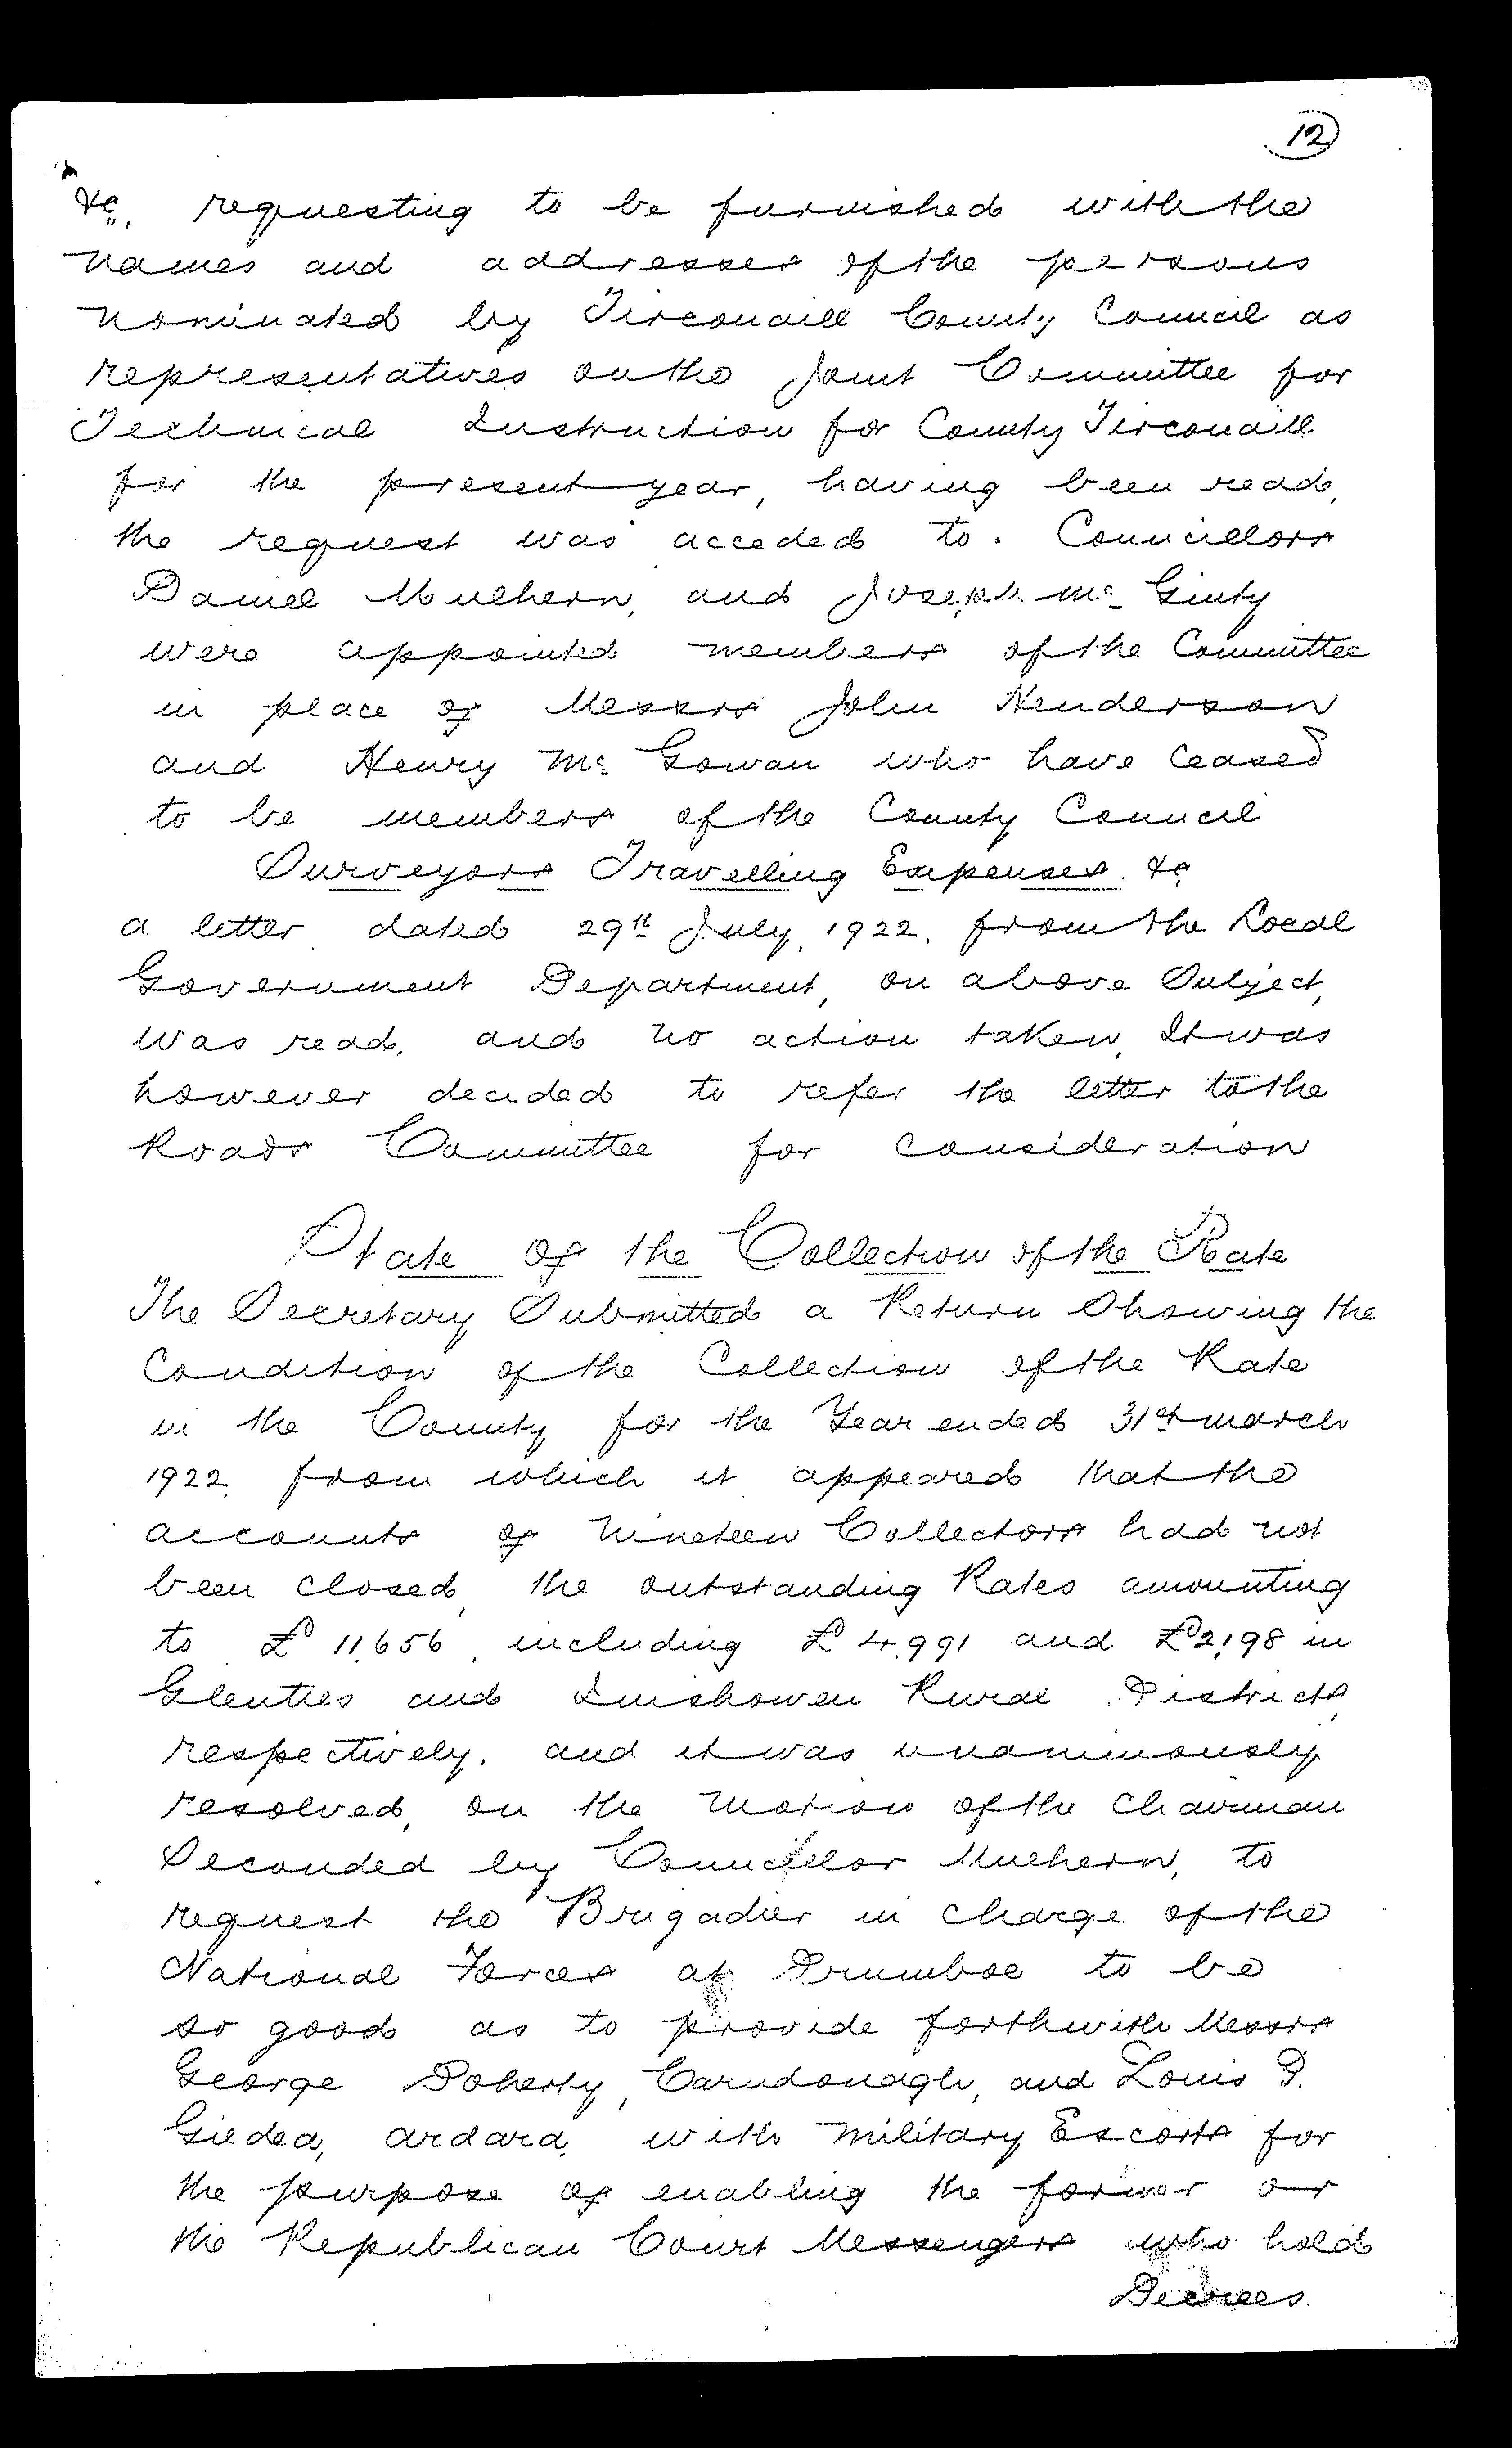 12
&c. requesting to be furnished with the
names and addresses of the persons
nominated by Tirconaill County Council as
representatives on the Joint Committee for
Technical Instruction for County Tirconaill
for the present year, having been read,
the request was acceded to. Councillors
Daniel Mulhern, and Joseph Mc Ginty
were appointed members of the Committee
in place of Messrs John Henderson
and Henry Mc Gowan who have ceased
to be members of the County Council
Surveyors Travelling Expenses &c
a letter dated 29th July, 1922, from the Local
Government Department, on above Subject,
was read, and no action taken, It was
however decided to refer the letter to the
Roads Committee for consideration
State of the Collection of the Rate
The Secretary Submitted a Return Showing the
Condition of the Collection of the Rate
in the County for the Year ended 31st March
1922, from which it appeared that the
accounts of Nineteen Collectors had not
been closed, the outstanding Rates amounting
to £11,656, including £4,991 and £2,198 in
Glenties and Inishowen Rural Districts,
respectively, and it was unanimously
resolved, on the motion of the Chairman
Seconded by Councillor Mulhern, to
request the Brigadier in charge of the
National Forces at Drumboe to be
so good as to provide forthwith Messrs
George Doherty, Carndonagh, and Louis P.
Gildea, Ardara, with Military Escorts for
the purpose of enabling the former or
the Republican Court Messengers who hold
Decrees